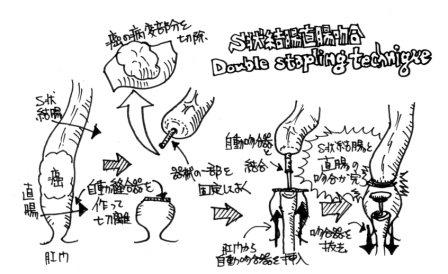 S状結腸直腸吻合
Double stapling technique
癌の病変部分を
切除
S状
結腸
癌
直腸
肛門
自動縫合器を
作って
切離
器械の一部を
固定しておく
自動吻合器
と
結合
肛門から
自動吻合器を挿入
S状結腸と
直腸の
吻合が完了
吻合器を
抜去